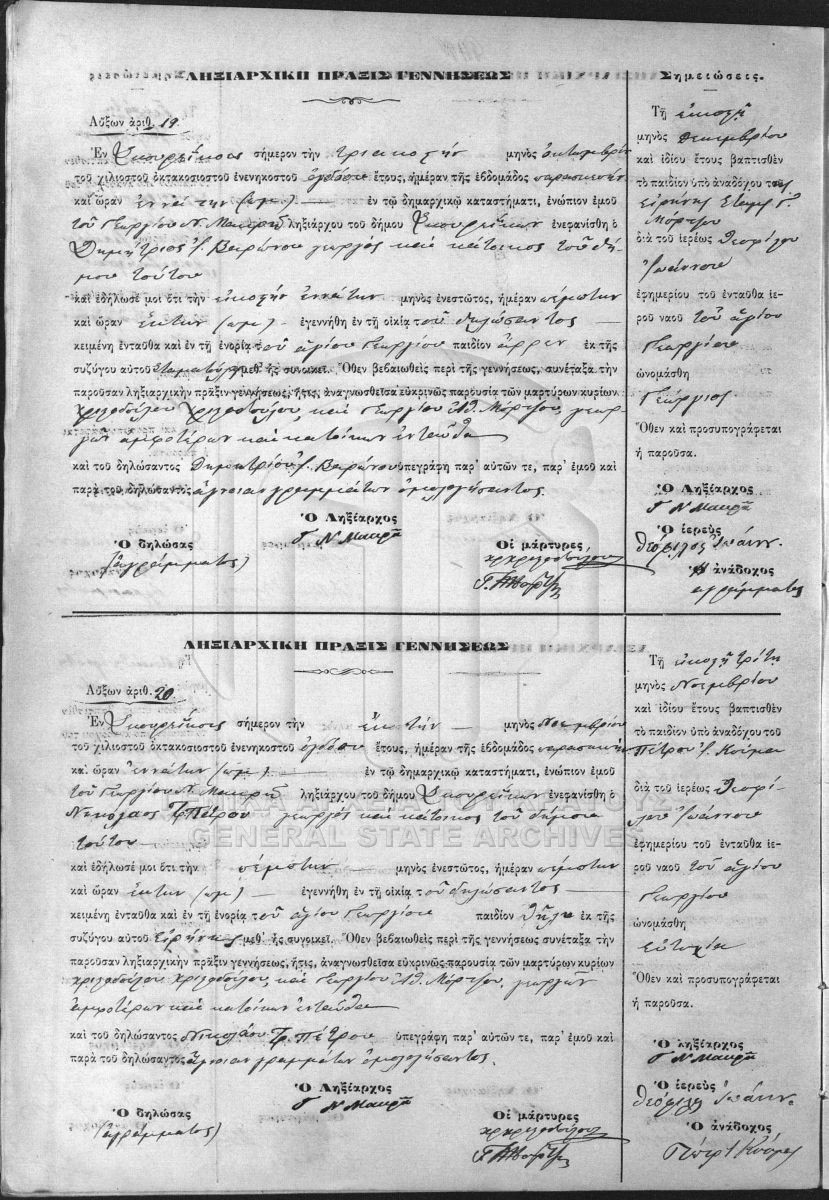 ΛΗΞΙΑΡΧΙΚΗ ΠΡΑΞΙΣ ΓΕΝΝΗΣΕΩΣ
Αὔξων ἀριθ. 19
Ἐν σήμερον τὴν τριακοστὴν μηνὸς ὀκτωμβρίου
τοῦ χιλιοστοῦ ὀκτακοσιοστοῦ ἐνενηκοστοῦ ὀγδόου ἔτους, ἡμέραν τῆς ἑβδομάδος παρασκευὴν
καὶ ὥραν ἐννάτην (πμ) ἐν τῷ δημαρχικῷ καταστήματι, ἐνώπιον ἐμοῦ
τοῦ Γεωργίου Ν. Μακρῆ ληξιάρχου τοῦ δήμου ἐνεφανίσθη ὁ
Δημήτριος Βαρώνου γεωργὸς καὶ κάτοικος τοῦ δή-
μου τούτου
καὶ ἐδήλωσέ μοι ὅτι τὴν εἰκοστὴν ἐννάτην μηνὸς ἐνεστῶτος, ἡμέραν πέμπτην
καὶ ὥραν ἕκτην (πμ) ἐγεννήθη ἐν τῇ οἰκίᾳ τοῦ δηλώσαντος
κειμένῃ ἐνταῦθα καὶ ἐν τῇ ἐνορίᾳ τοῦ ἁγίου Γεωργίου παιδίον ἄρρεν ἐκ τῆς
συζύγου αὐτοῦ Σταματούλας μεθ' ἧς συνοικεῖ. Ὅθεν βεβαιωθεὶς περὶ τῆς γεννήσεως, συνέταξα τὴν
παροῦσαν ληξιαρχικὴν πρᾶξιν γεννήσεως, ἥτις, ἀναγνωσθεῖσα εὐκρινῶς παρουσίᾳ τῶν μαρτύρων κυρίων
Χριστοδούλου Χριστοδούλου, καὶ Γεωργίου Ἀθ. Μόρτζου, γεωρ-
γῶν ἀμφοτέρων καὶ κατοίκων ἐνταῦθα
καὶ τοῦ δηλώσαντος Δημητρίου Βαρώνου ὑπεγράφη παρ' αὐτῶν τε, παρ' ἐμοῦ καὶ
παρὰ τοῦ δηλώσαντος ἄγνοιαν γραμμάτων ὁμολογήσαντος.
Ὁ Ληξίαρχος
Γ Ν Μακρῆς
Ὁ δηλώσας
(ἀγράμματος)
Οἱ μάρτυρες
Σημειώσεις.
Τῇ εἰκοστῇ
μηνὸς Δεκεμβρίου
καὶ ἰδίου ἔτους βαπτισθὲν
τὸ παιδίον ὑπὸ ἀναδόχου της
Εἰρήνης Σταμ.
Μόρτζου
διὰ τοῦ ἱερέως Θεοφίλου
Ἰωάννου
ἐφημερίου τοῦ ἐνταῦθα ἱε-
ροῦ ναοῦ τοῦ ἁγίου
Γεωργίου
ὠνομάσθη
Γεώργιος
Ὅθεν καὶ προσυπογράφεται
ἡ παροῦσα.
Ὁ Ληξίαρχος
Γ Ν Μακρῆς
Ὁ ἱερεὺς
Θεόφιλος Ἰωάνν.
ἀνάδοχος
ἀγράμματος
ΛΗΞΙΑΡΧΙΚΗ ΠΡΑΞΙΣ ΓΕΝΝΗΣΕΩΣ
Αὔξων ἀριθ. 20
Ἐν σήμερον τὴν ἕκτην μηνὸς Νοεμβρίου
τοῦ χιλιοστοῦ ὀκτακοσιοστοῦ ἐνενηκοστοῦ ὀγδόου ἔτους, ἡμέραν τῆς ἑβδομάδος παρασκευὴν
καὶ ὥραν ἐννάτην (πμ) ἐν τῷ δημαρχικῷ καταστήματι, ἐνώπιον ἐμοῦ
τοῦ Γεωργίου Ν. Μακρῆ ληξιάρχου τοῦ δήμου ἐνεφανίσθη ὁ
Νικόλαος Πέτρου γεωργὸς καὶ κάτοικος τοῦ δήμου
τούτου
καὶ ἐδήλωσέ μοι ὅτι τὴν πέμπτην μηνὸς ἐνεστῶτος, ἡμέραν πέμπτην
καὶ ὥραν ἕκτην (πμ) ἐγεννήθη ἐν τῇ οἰκίᾳ τοῦ δηλώσαντος
κειμένῃ ἐνταῦθα καὶ ἐν τῇ ἐνορίᾳ τοῦ ἁγίου Γεωργίου παιδίον θῆλυ ἐκ τῆς
συζύγου αὐτοῦ Εἰρήνης μεθ' ἧς συνοικεῖ. Ὅθεν βεβαιωθεὶς περὶ τῆς γεννήσεως συνέταξα τὴν
παροῦσαν ληξιαρχικὴν πρᾶξιν γεννήσεως, ἥτις, ἀναγνωσθεῖσα εὐκρινῶς παρουσίᾳ τῶν μαρτύρων κυρίων
Χριστοδούλου Χριστοδούλου, καὶ Γεωργίου Ἀθ. Μόρτζου, γεωργῶν
ἀμφοτέρων καὶ κατοίκων ἐνταῦθα
καὶ τοῦ δηλώσαντος Νικολάου Πέτρου ὑπεγράφη παρ' αὐτῶν τε, παρ' ἐμοῦ καὶ
παρὰ τοῦ δηλώσαντος ἄγνοιαν γραμμάτων ὁμολογήσαντος.
Ὁ Ληξίαρχος
Γ Ν Μακρῆς
Ὁ δηλώσας
(ἀγράμματος)
Οἱ μάρτυρες
Τῇ εἰκοστῇ τρίτῃ
μηνὸς Νοεμβρίου
καὶ ἰδίου ἔτους βαπτισθὲν
τὸ παιδίον ὑπὸ ἀναδόχου τοῦ
Πέτρου Κούμα
διὰ τοῦ ἱερέως Θεοφί-
λου Ἰωάννου
ἐφημερίου τοῦ ἐνταῦθα ἱε-
ροῦ ναοῦ τοῦ ἁγίου
Γεωργίου
ὠνομάσθη
Εὐτυχία
Ὅθεν καὶ προσυπογράφεται
ἡ παροῦσα.
Ὁ ληξίαρχος
Γ Ν Μακρῆς
Ὁ ἱερεὺς
Θεόφιλος Ἰωάνν.
Ὁ ἀνάδοχος
ΓΕΝΙΚΑ ΑΡΧΕΙΑ ΤΟΥ ΚΡΑΤΟΥΣ
GENERAL STATE ARCHIVES